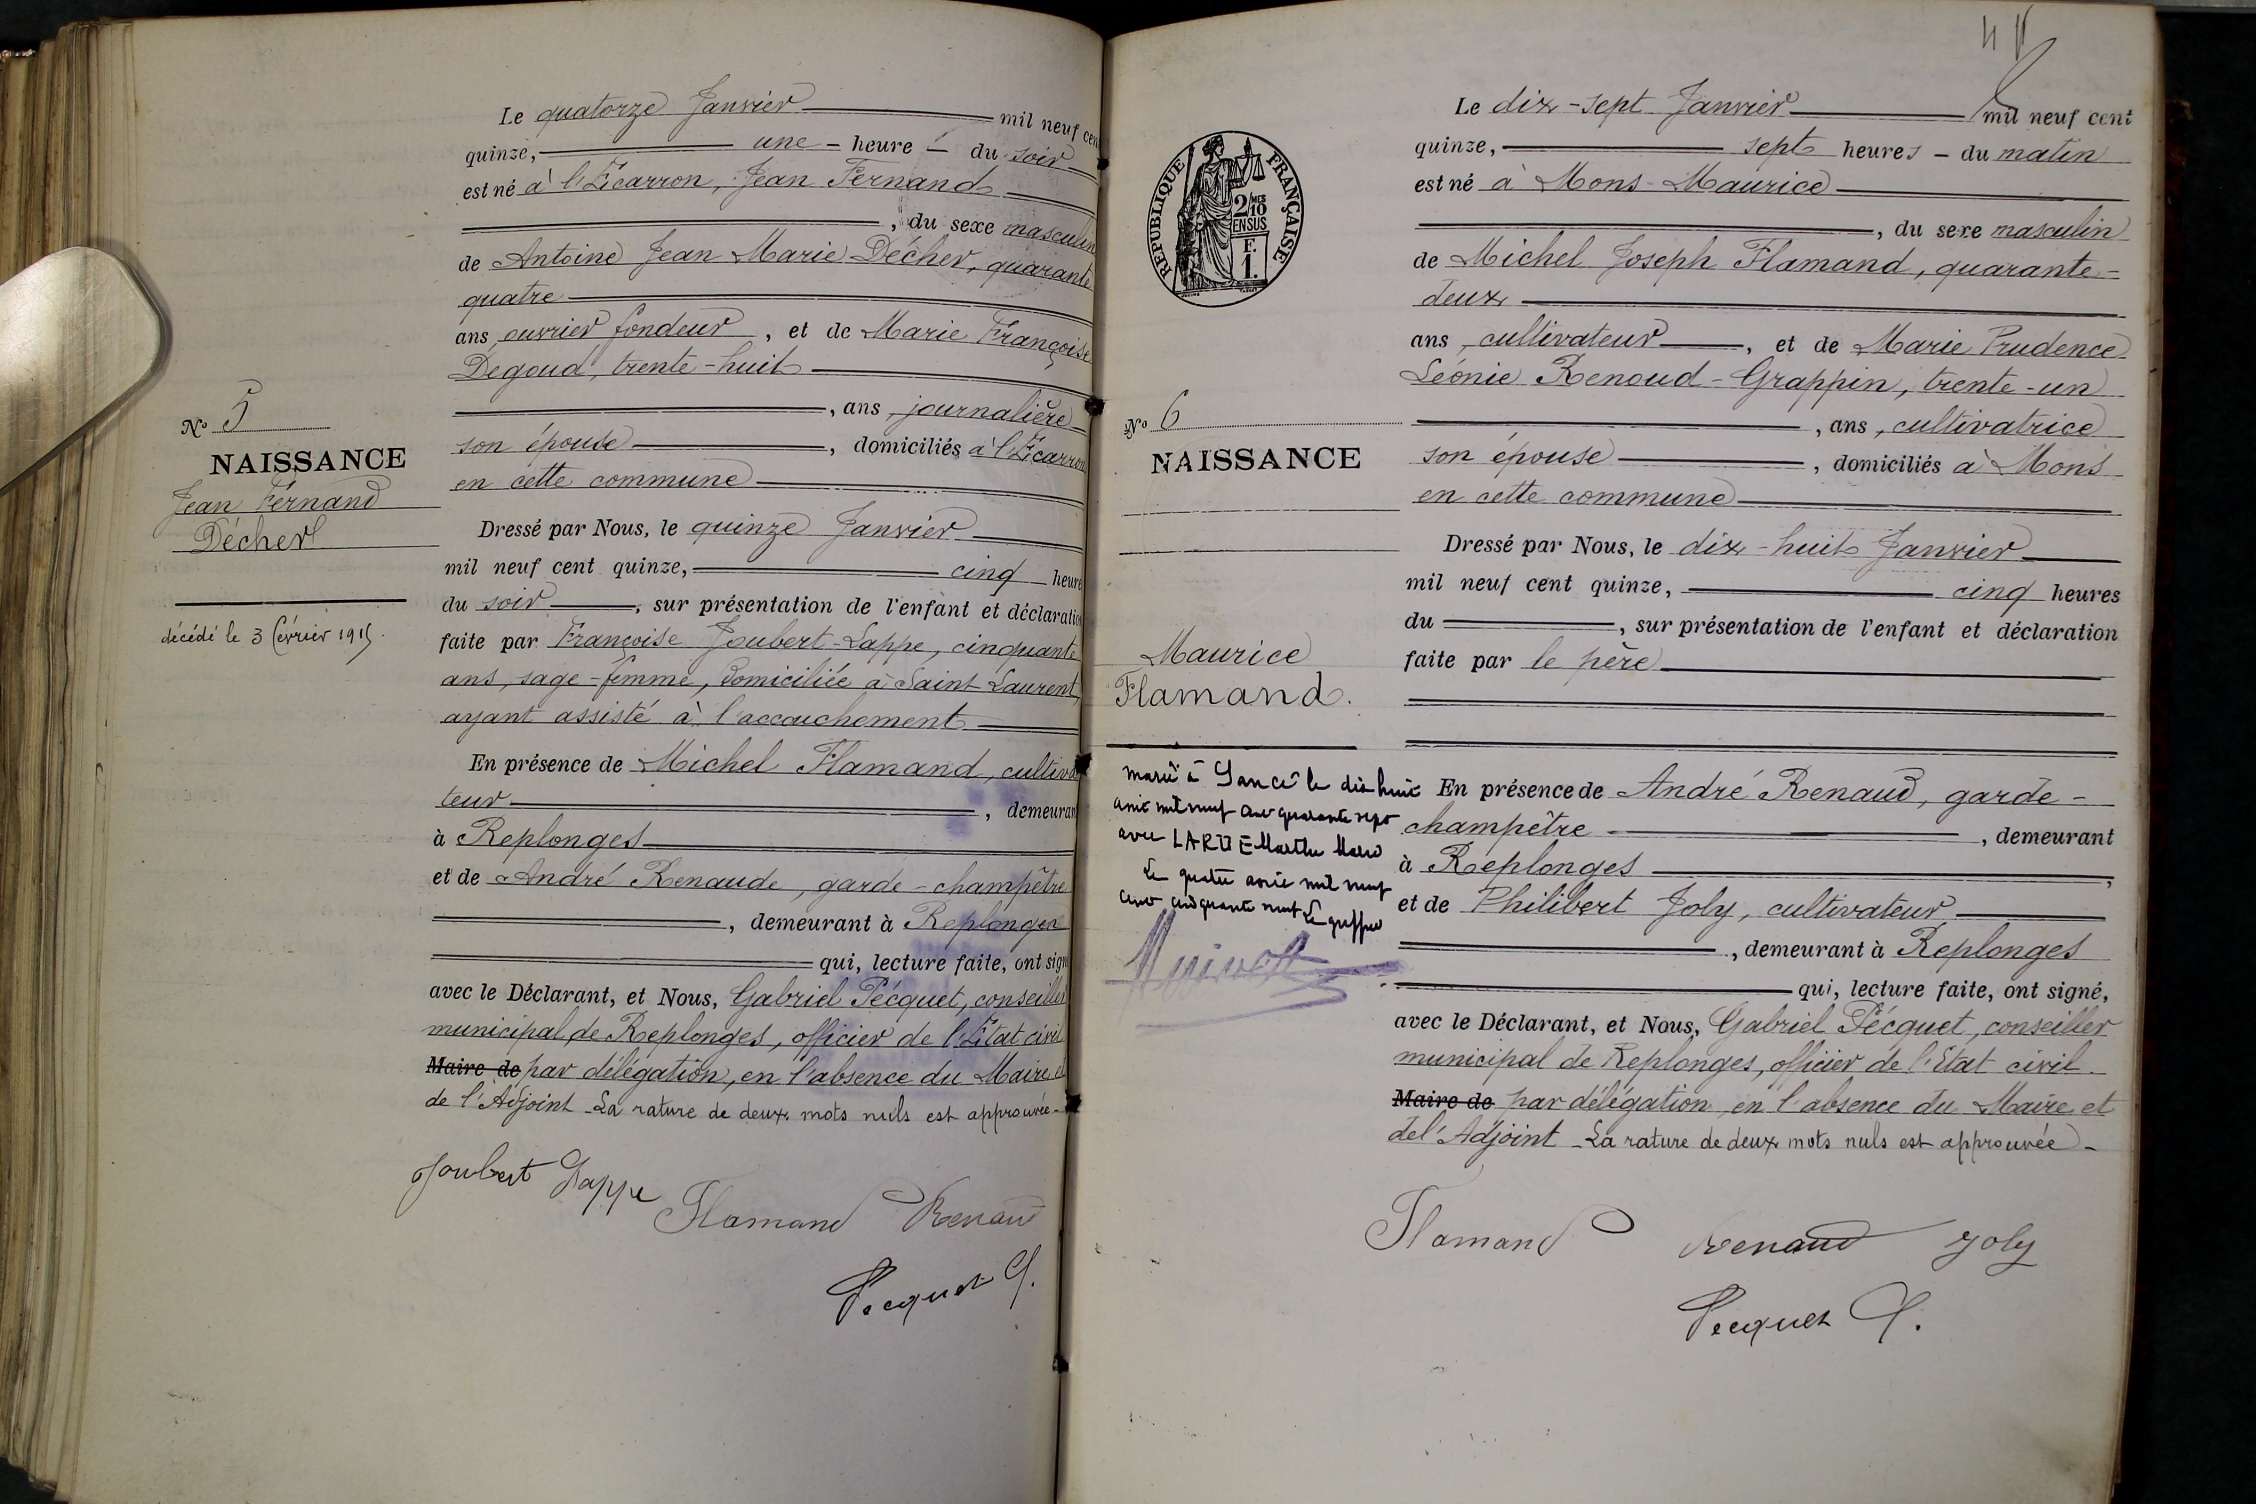 Le quatorze Janvier mil neuf cen
quinze, une heure du soir
est né à l'Écarron, Jean Fernand
, du sexe masculin
de Antoine Jean Marie Décher, quarante
quatre
ans, ouvrier fondeur, et de Marie Françoise
Degoud, trente-huit
, ans, journalière
son épouse, domiciliés à l'Écarron
en cette commune
No 5
NAISSANCE
Jean Fernand
Décher
décédé le 3 février 1915.
Dressé par Nous, le quinze Janvier
mil neuf cent quinze, cinq heure
du soir, sur présentation de l'enfant et déclaration
faite par Françoise Joubert-Lappe, cinquante
ans, sage-femme, domiciliée à Saint-Laurent,
ayant assisté à l'accouchement
En présence de Michel Flamand, cultiva
teur, demeurant
à Replonges
et de André Renaude, garde-champêtre
, demeurant à Replonges
qui, lecture faite, ont signé
avec le Déclarant, et Nous, Gabriel Pécquet, conseiller
municipal de Replonges, officier de l'État civil
Maire de par délégation, en l'absence du Maire et
de l'Adjoint - La rature de deux mots nuls est approuvée -
Joubert Lappe
Flamand Renaud
Pecquet G.
Le dix-sept Janvier mil neuf cent
quinze, sept heures - du matin
est né à Mons - Maurice
, du sexe masculin
de Michel Joseph Flamand, quarante-
deux
ans, cultivateur, et de Marie Prudence
Léonie Renoud-Grappin, trente-un
, ans, cultivatrice
son épouse, domiciliés à Mons
en cette commune
REPUBLIQUE FRANÇAISE
2/10 MES
EN SUS
F.
1.
No 6
NAISSANCE
Maurice
Flamand.
marié à le dix huit
avril mil neuf cent quarante sept
avec LARUE Marthe Marie
Le quatre avril mil neuf
cent cinquante neuf Le greffier
Dressé par Nous, le dix-huit Janvier
mil neuf cent quinze, cinq heures
du, sur présentation de l'enfant et déclaration
faite par le père
En présence de André Renaud, garde-
champêtre, demeurant
à Replonges,
et de Philibert Joly, cultivateur
, demeurant à Replonges
qui, lecture faite, ont signé,
avec le Déclarant, et Nous, Gabriel Pécquet, conseiller
municipal de Replonges, officier de l'Etat civil
Maire de par délégation, en l'absence du Maire et
de l'Adjoint - La rature de deux mots nuls est approuvée -
Flamand Renaud Joly
Pecquet G.